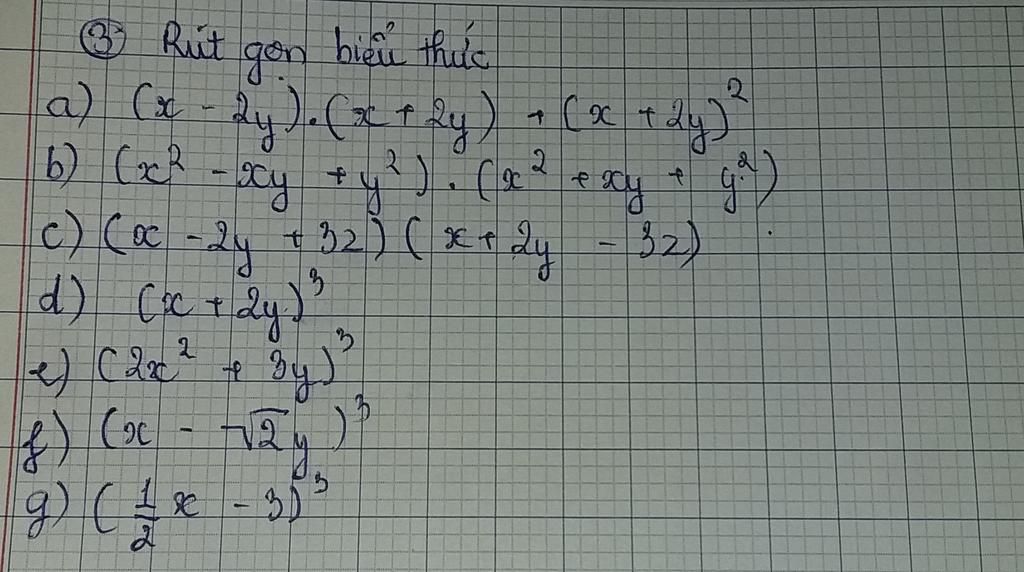 ③ Rút gọn biểu thức
a) (x - 2y).(x + 2y) + (x + 2y)²
b) (x² - xy + y²).(x² + xy + y²)
c) (x - 2y + 3z)(x + 2y - 3z)
d) (x + 2y)³
e) (2x² + 3y)³
f) (x - √2y)³
g) (1/2 x - 3)³